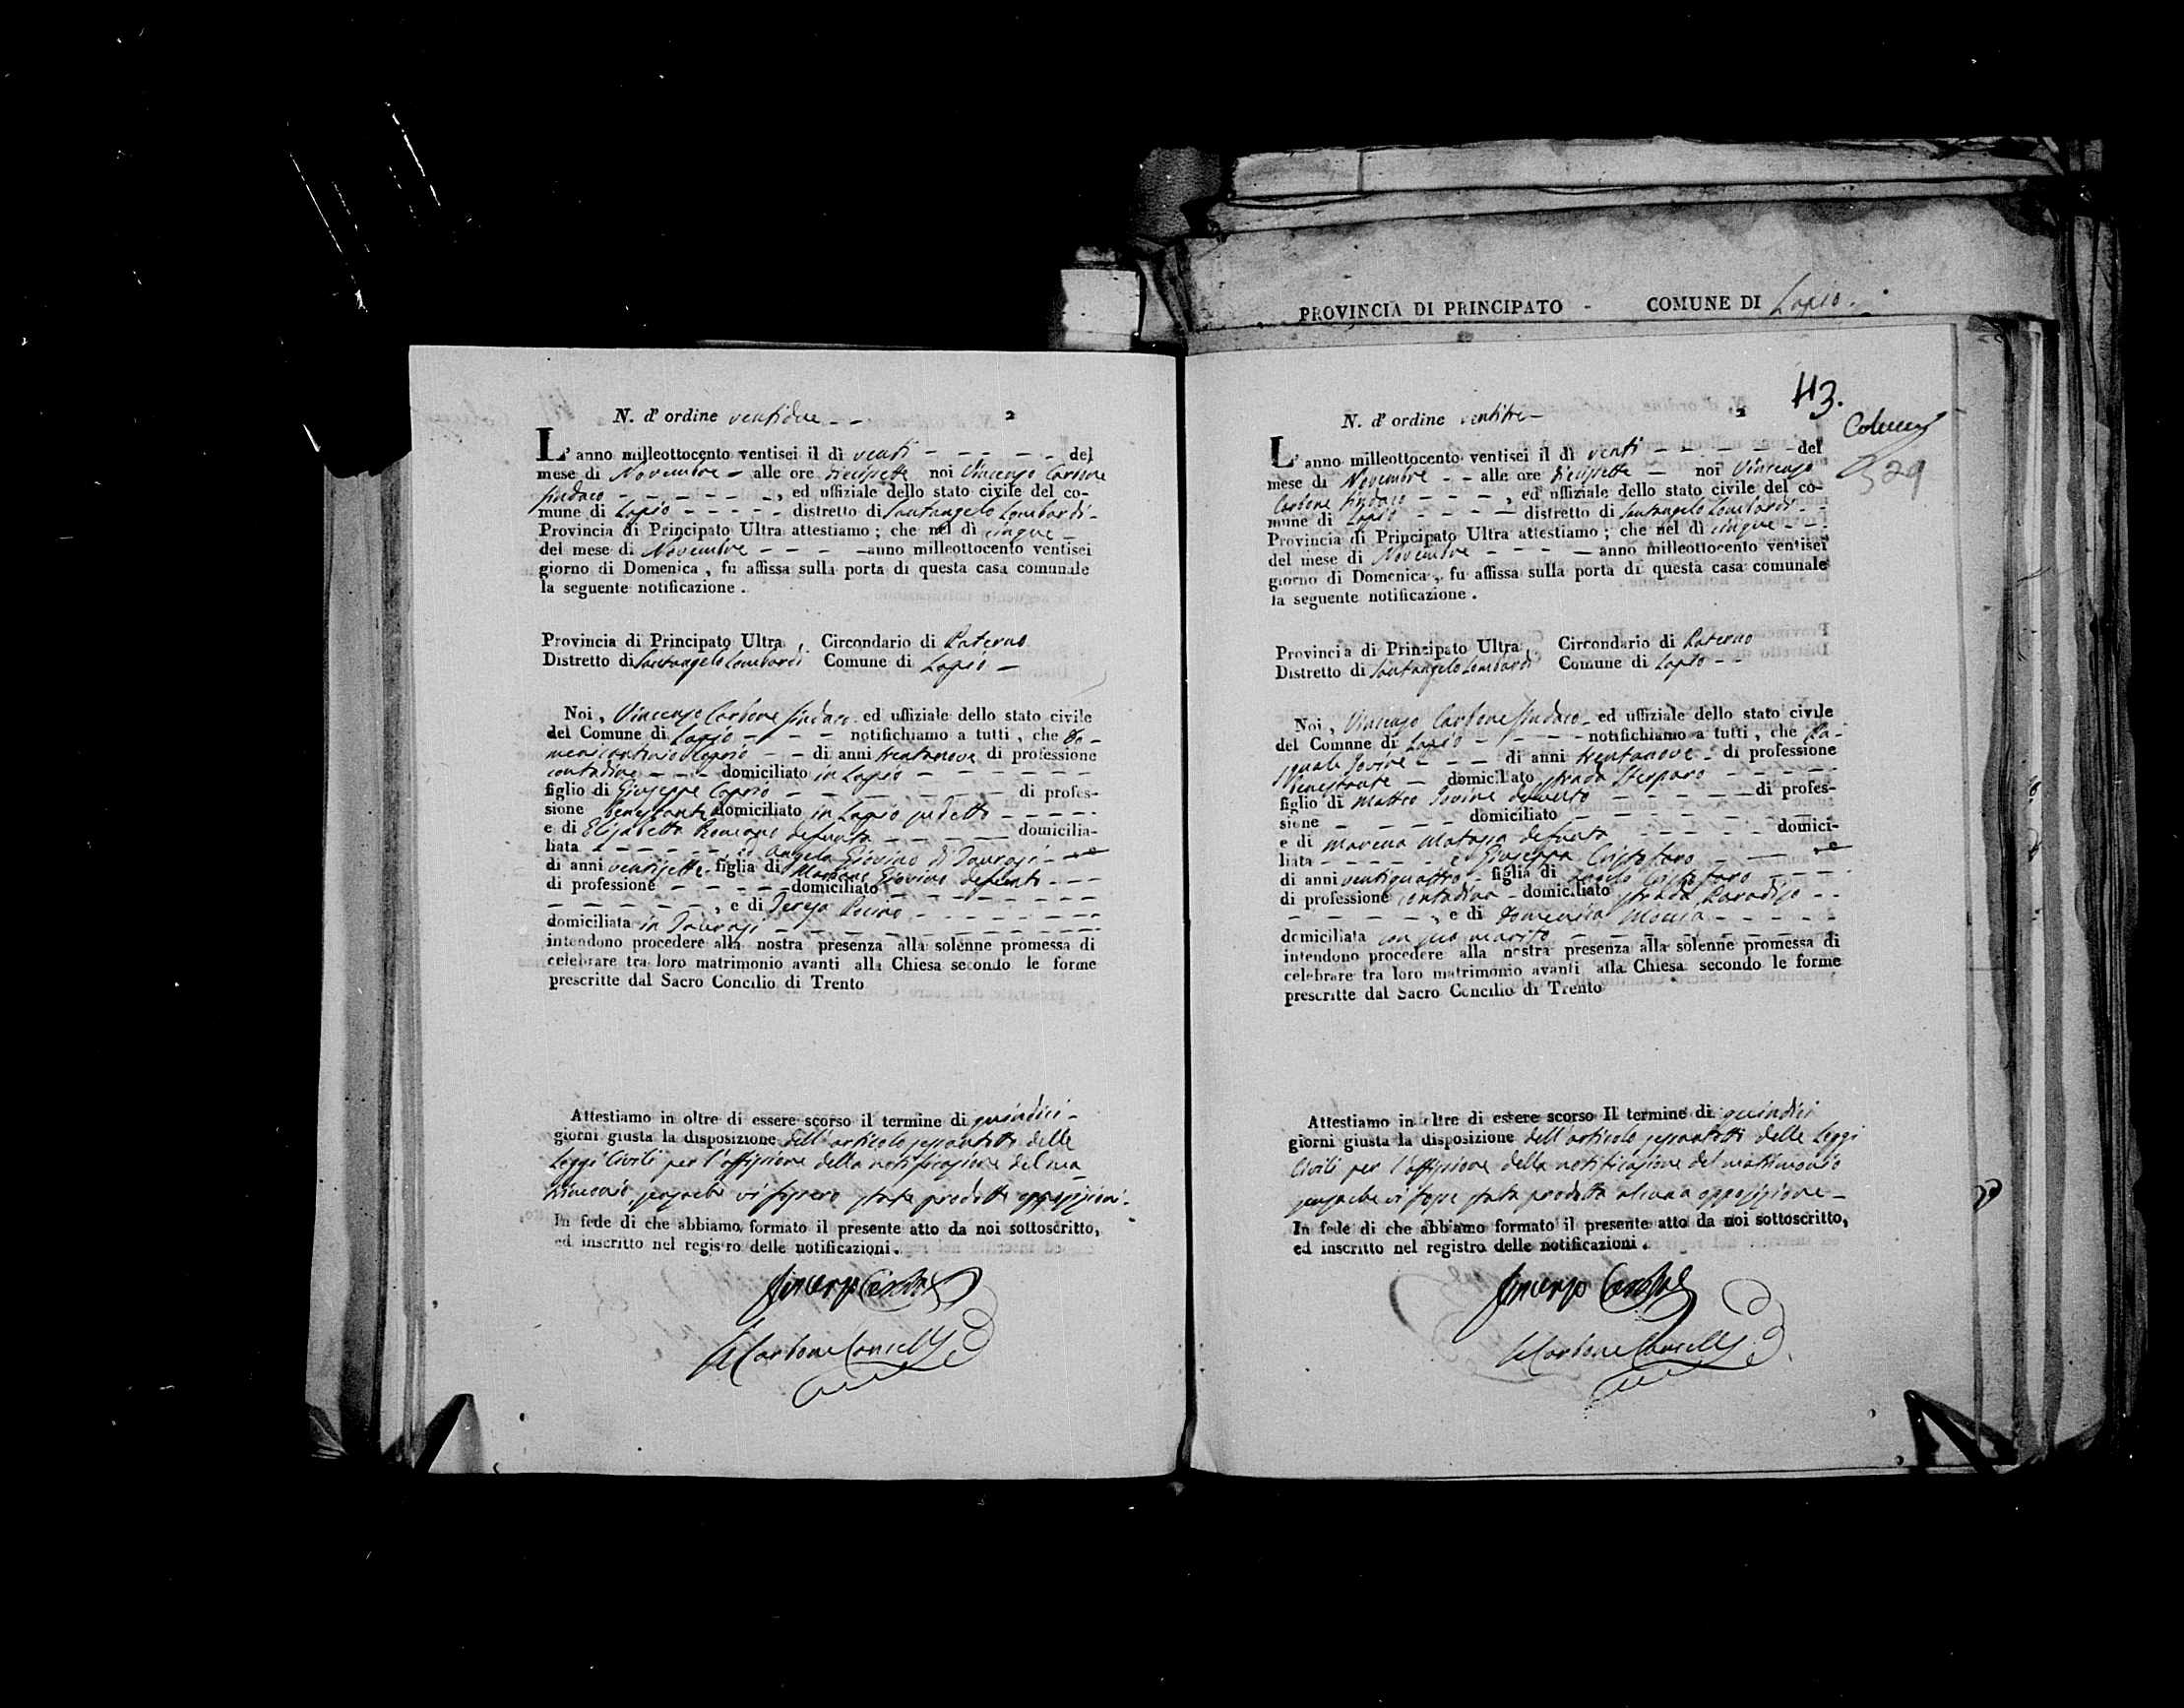 PROVINCIA DI PRINCIPATO - COMUNE DI Lapio.
N. d' ordine ventidue - - 2
L' anno milleottocento ventisei il dì venti - - - - - del
mese di Novembre - alle ore diecisette noi Vincenzo Carbone
Sindaco - - - - - -, ed uffiziale dello stato civile del co-
mune di Lapio - - - - - distretto di Santangelo Lombardi -
Provincia di Principato Ultra attestiamo ; che nel dì cinque -
del mese di Novembre - - - - anno milleottocento ventisei
giorno di Domenica , fu affissa sulla porta di questa casa comunale
la seguente notificazione .
Provincia di Principato Ultra , Circondario di Paterno
Distretto di Santangelo Lombardi Comune di Lapio -
Noi , Vincenzo Carbone Sindaco ed uffiziale dello stato civile
del Comune di Lapio - - - - notifichiamo a tutti , che Do-
- - di anni trentanove di professione
contadino - - - domiciliato in Lapio - - - - - -
figlio di Giuseppe Caprio - - - - - - - - di profes-
sione benestante domiciliato in Lapio sudetto - - - - -
e di Elisabetta Romano defunta - - - - - domicilia-
liata - - - - - - ed Angela Giovino di Taurasi - -
di anni ventisette - figlia di Giovino defunto - - -
di professione - - - - - domiciliato - - - - - - - -
- - - - - - , e di Teresa - - - - - - -
domiciliata in Taurasi - - - - - - - - - - - -
intendono procedere alla nostra presenza alla solenne promessa di
celebrare tra loro matrimonio avanti alla Chiesa secondo le forme
prescritte dal Sacro Concilio di Trento
Attestiamo in oltre di essere scorso il termine di quindici -
giorni giusta la disposizione dell' articolo sessantotto delle
Leggi Civili per l' affissione della notificazione del ma-
trimonio, senzache vi fossero state prodotte opposizioni -
In fede di che abbiamo formato il presente atto da noi sottoscritto,
ed inscritto nel registro delle notificazioni .
Vincenzo Carbone
Carbone Cancell
43.
N. d' ordine ventitre - 2
329
L' anno milleottocento ventisei il dì venti - - - - - del
mese di Novembre - - alle ore diecisette - noi Vincenzo
Carbone Sindaco - - - - , ed uffiziale dello stato civile del co-
mune di Lapio - - - - - distretto di Santangelo Lombardi - -
Provincia di Principato Ultra attestiamo ; che nel dì cinque - - -
del mese di Novembre - - - - anno milleottocento ventisei
giorno di Domenica , fu affissa sulla porta di questa casa comunale
la seguente notificazione .
Provincia di Principato Ultra , Circondario di Paterno
Distretto di Santangelo Lombardi Comune di Lapio - -
Noi , Vincenzo Carbone Sindaco - ed uffiziale dello stato civile
del Comune di Lapio - - - - - notifichiamo a tutti , che Pa-
squale Iovine - - - - di anni trentanove - di professione
benestante - domiciliato strada - - - - -
figlio di Matteo Iovine defunto - - - - - di profes-
sione - - - - - domiciliato - - - - - - - -
e di defunta - - - - - domici-
liata - - - - - e Giuseppa Cristofaro - - -
di anni ventiquattro - figlia di Angelo Cristofaro - - - -
di professione contadina - domiciliato strada Paradiso - -
- - - - - , e di Domenica - - - - -
domiciliata con suo marito - - - - - - - -
intendono procedere alla nostra presenza alla solenne promessa di
celebrare tra loro matrimonio avanti alla Chiesa secondo le forme
prescritte dal Sacro Concilio di Trento
Attestiamo in oltre di essere scorso Il termine di quindici
giorni giusta la disposizione dell' articolo sessantotto delle Leggi
Civili per l' affissione della notificazione del matrimonio
senzache vi fosse stata prodotta alcuna opposizione -
In fede di che abbiamo formato il presente atto da noi sottoscritto,
ed inscritto nel registro delle notificazioni .
Vincenzo Carbone
Carbone Cancell